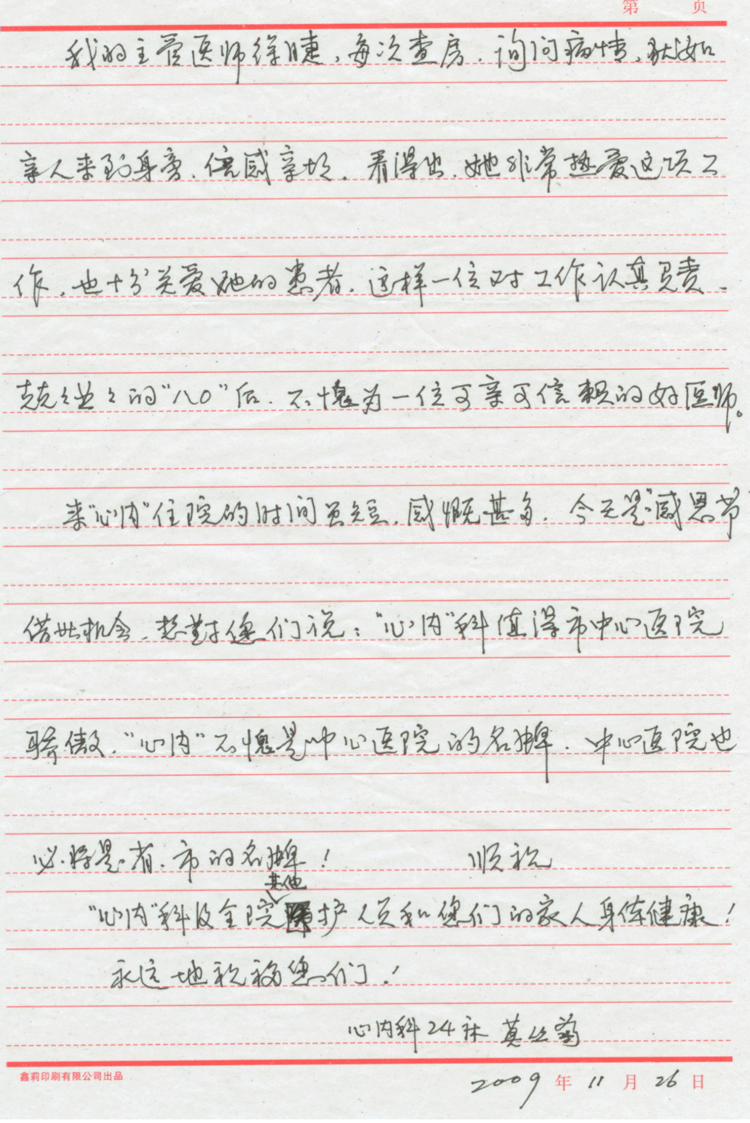 第 页
我的主管医师徐睫,每次查房、询问病情,就如
亲人来到身旁,倍感亲切。看得出,她非常热爱这项工
作,也十分关爱她的患者,这样一位对工作认真负责、
兢々业々的“八0”后,不愧为一位可亲可信赖的好医师。
来“心内”住院的时间虽短,感慨甚多,今天是“感恩节
借此机会,想對您们说:“心内”科值得市中心医院
骄傲,“心内”不愧是中心医院的名牌,中心医院也
必将是省、市的名牌! 顺祝
“心内”科及全院其他医护人员和您们的家人身体健康!
永远地祝福您们!
心内科24床 莫 菊
鑫莉印刷有限公司出品
2009年11月26日